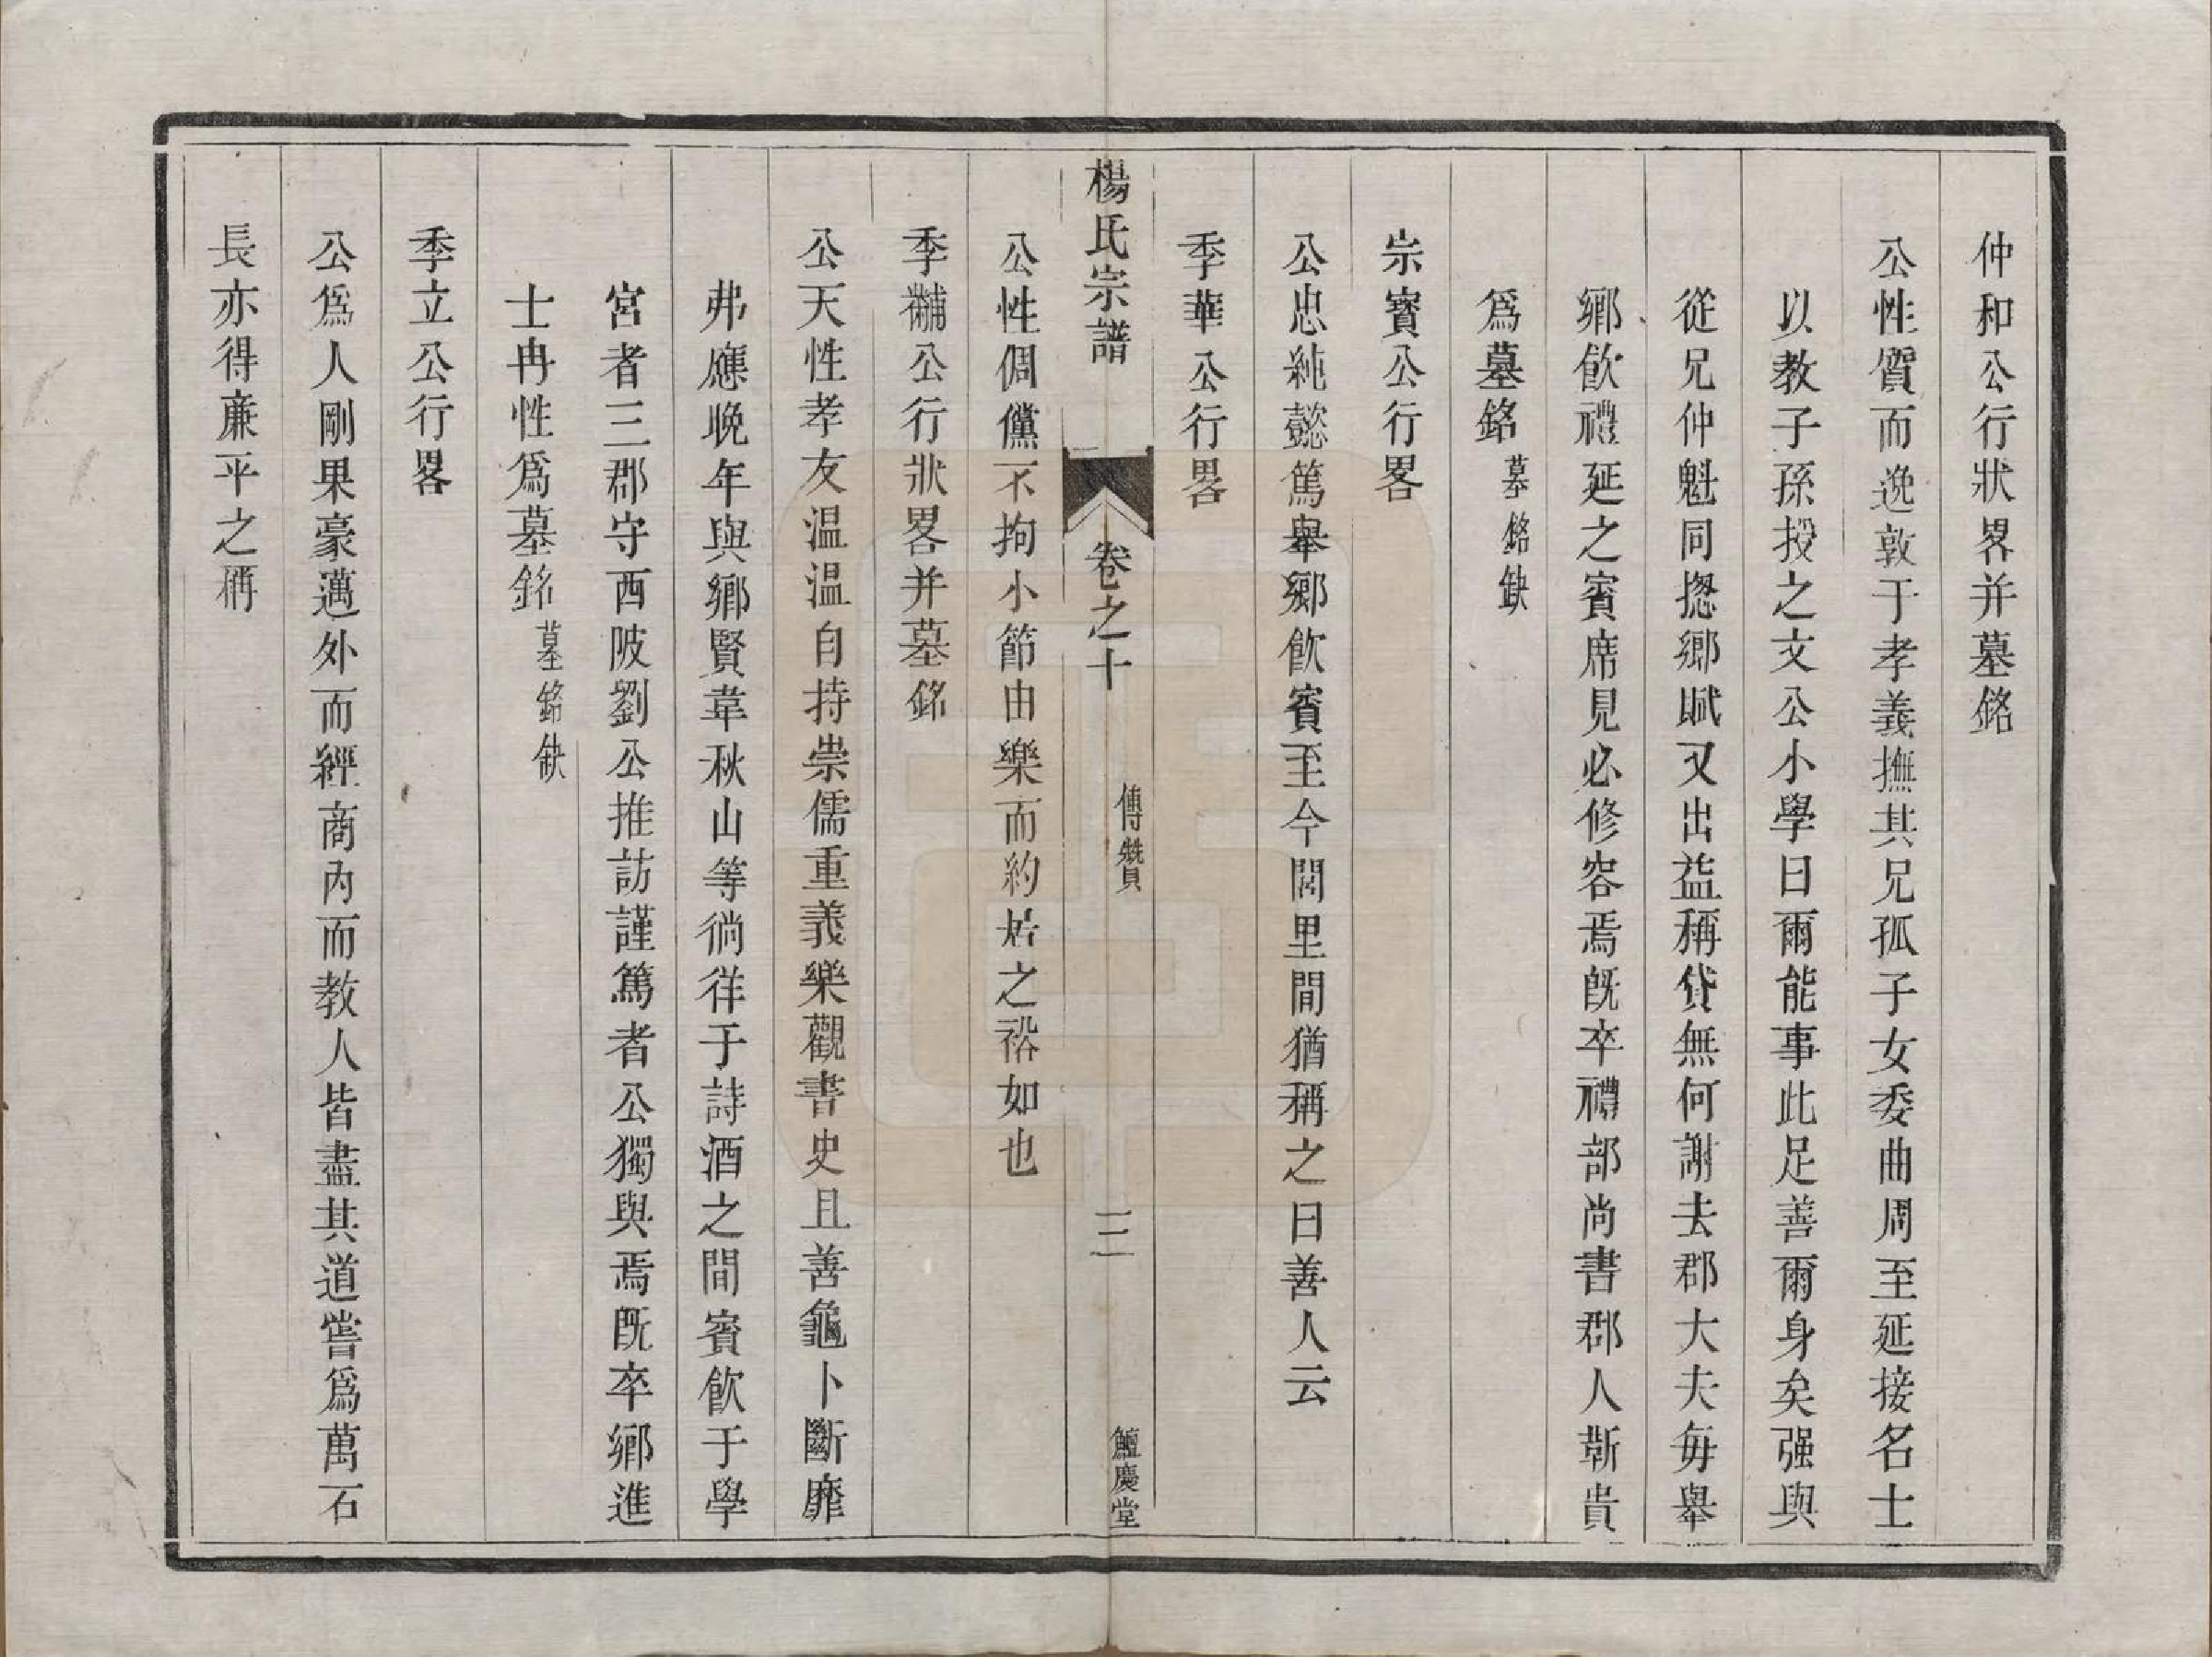 仲和公行狀畧并墓銘
公性質而逸敦于孝義撫其兄孤子女委曲周至延接名士
以教子孫授之文公小學曰爾能事此足善爾身矣强與
從兄仲魁同揔鄉賦又出益稱貸無何謝去郡大夫每舉
鄉飲禮延之賓席見必修容焉旣卒禮部尚書郡人靳貴
爲墓銘 墓銘缺
宗賓公行畧
公忠純懿篤舉鄉飲賓至今閭里間猶稱之曰善人云
季華公行畧
楊氏宗譜 卷之十 傳贊 三 鱣慶堂
公性倜儻不拘小節由樂而約居之裕如也
季黼公行狀畧并墓銘
公天性孝友温温自持崇儒重義樂觀書史且善龜卜斷靡
弗應晚年與鄉賢韋秋山等徜徉于詩酒之間賓飲于學
宮者三郡守西陂劉公推訪謹篤者公獨與焉旣卒鄉進
士冉性爲墓銘 墓銘缺
季立公行畧
公爲人剛果豪邁外而經商內而教人皆盡其道嘗爲萬石
長亦得廉平之稱